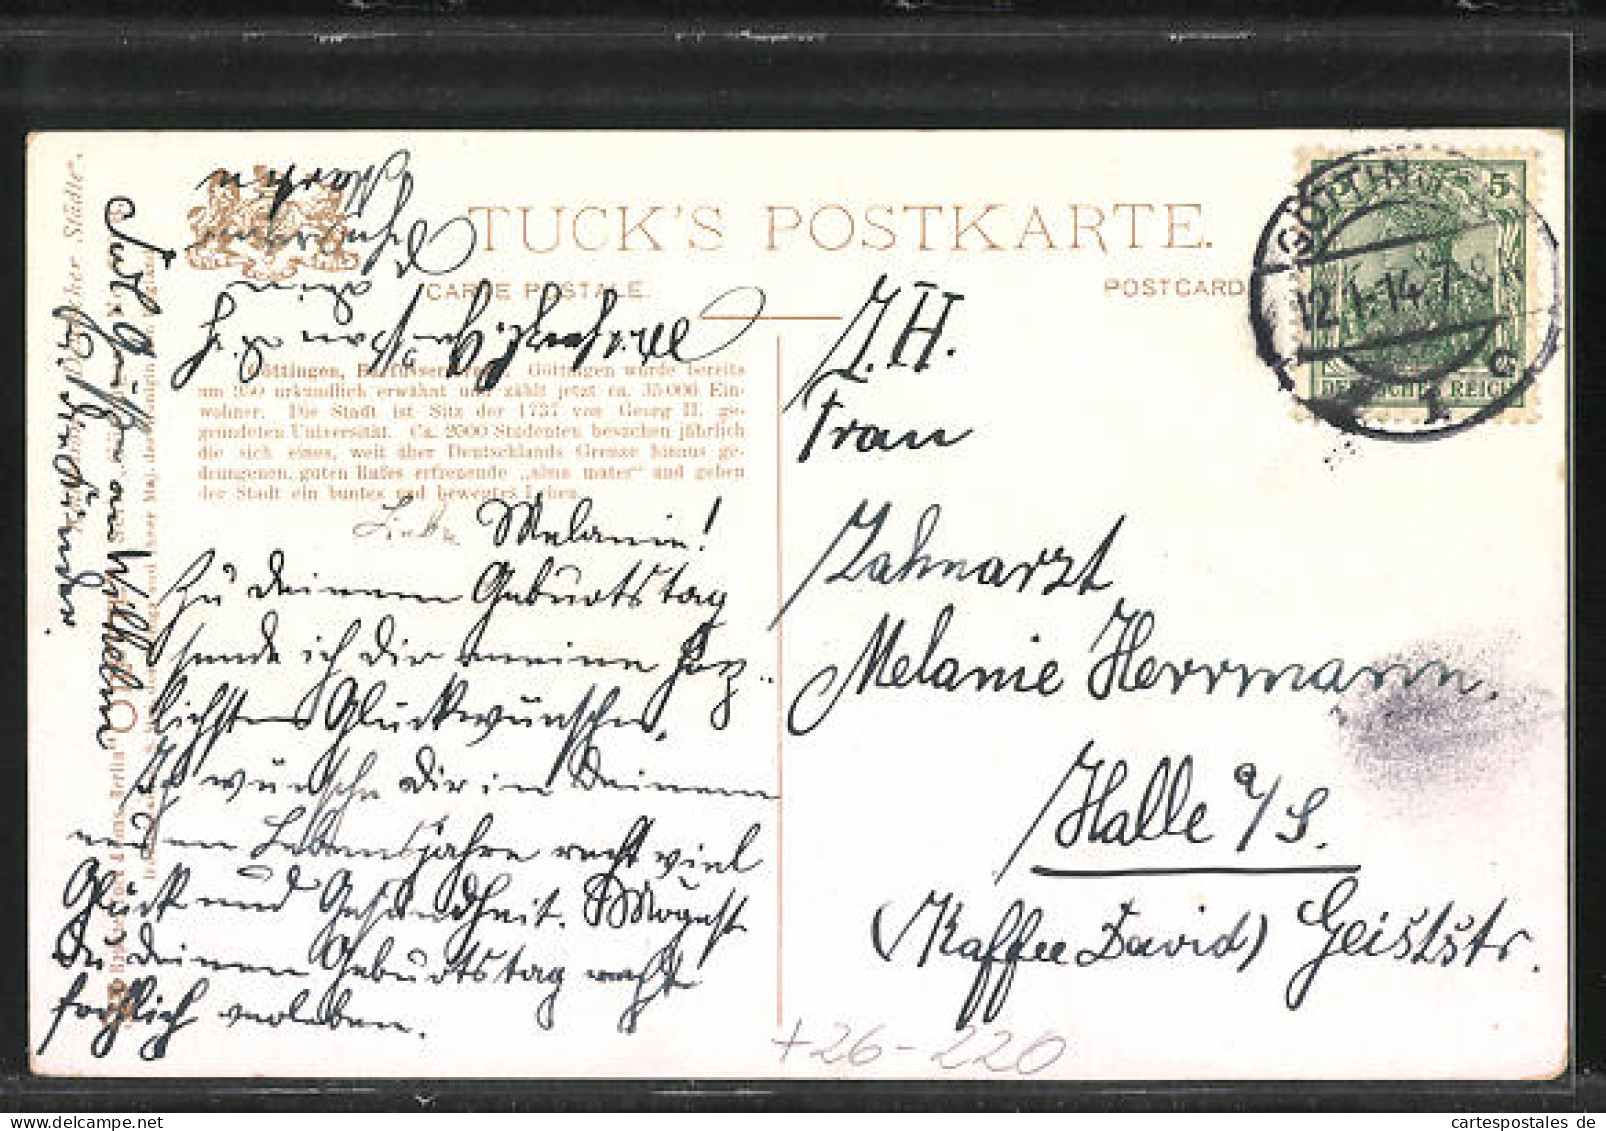 TUCK'S POSTKARTE.
CARTE POSTALE.
POSTCARD
GÖTTINGEN
12.1.14. 7-8
c
5
DEUTSCHES REICH
Göttingen, Göttingen wurde bereits
um 950 urkundlich erwähnt und zählt jetzt ca. 35 000 Ein-
wohner. Die Stadt ist Sitz der 1737 von Georg II. ge-
gründeten Universität. Ca. 2000 Studenten besuchen jährlich
die sich eines, weit über Deutschlands Grenze hinaus ge-
drungenen, guten Rufes erfreuende „alma mater" und geben
der Stadt ein buntes und bewegtes Leben.
Liebe Melanie!
Zu Deinem Geburtstag
sende ich Dir meine herz-
lichsten Glückwünsche.
Ich wünsche Dir in Deinem
neuen Lebensjahre recht viel
Glück und Gesundheit. Mögest
Du Deinen Geburtstag recht
fröhlich verleben.
Deine
Schwester
Viele Grüße an Wilhelm
I. H.
Frau
Zahnarzt
Melanie Herrmann.
Halle a/S.
(Kaffee David) Geiststr.
+26-220
cartespostales de